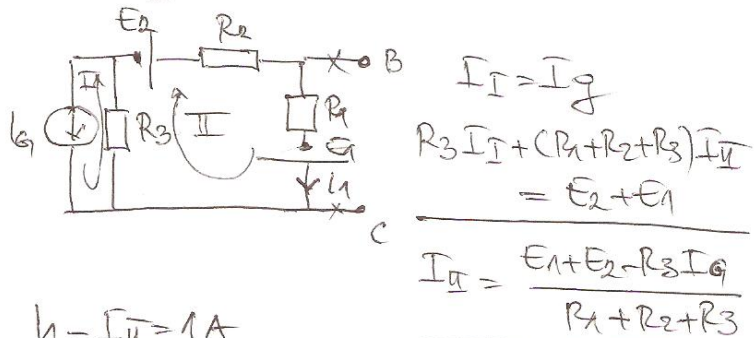 E2
R2
B
IG
I
R3
II
R1
E1
i1
C
I_I = Ig
R3 I_I + (R1+R2+R3) I_II
= E2 + E1
I_II = (E1+E2-R3 IG) / (R1+R2+R3)
I_II = 1A